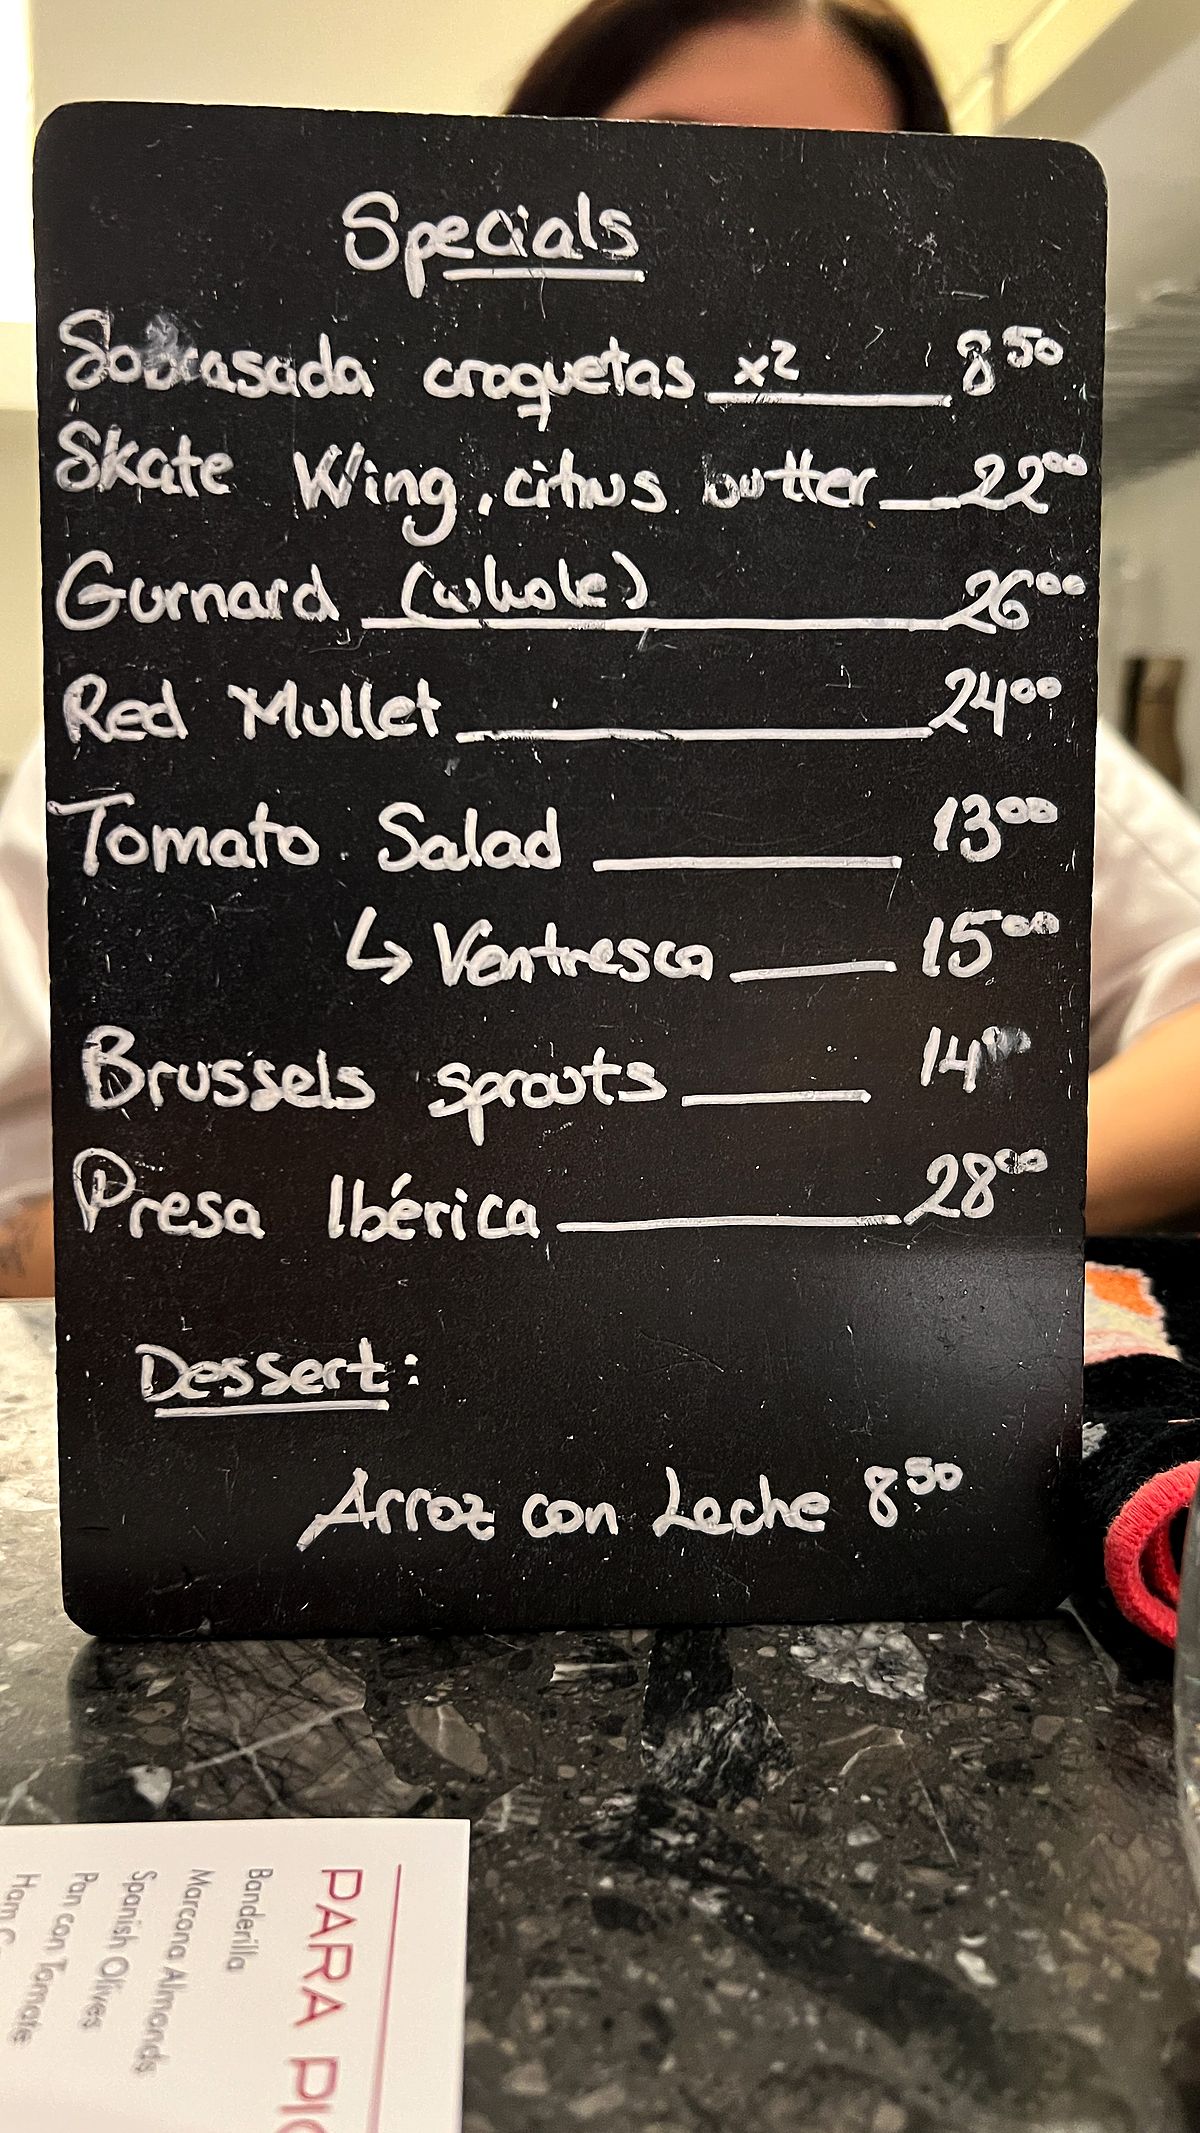 Specials
Sobrasada croquetas x2 8.50
Skate Wing, citrus butter 22.00
Gurnard (whole) 26.00
Red Mullet 24.00
Tomato Salad 13.00
↳ Ventresca 15.00
Brussels sprouts 14
Presa Ibérica 28.00
Dessert:
Arroz con Leche 8.50
PARA
Banderilla
Marcona Almonds
Spanish Olives
Pan con Tomate
Ham